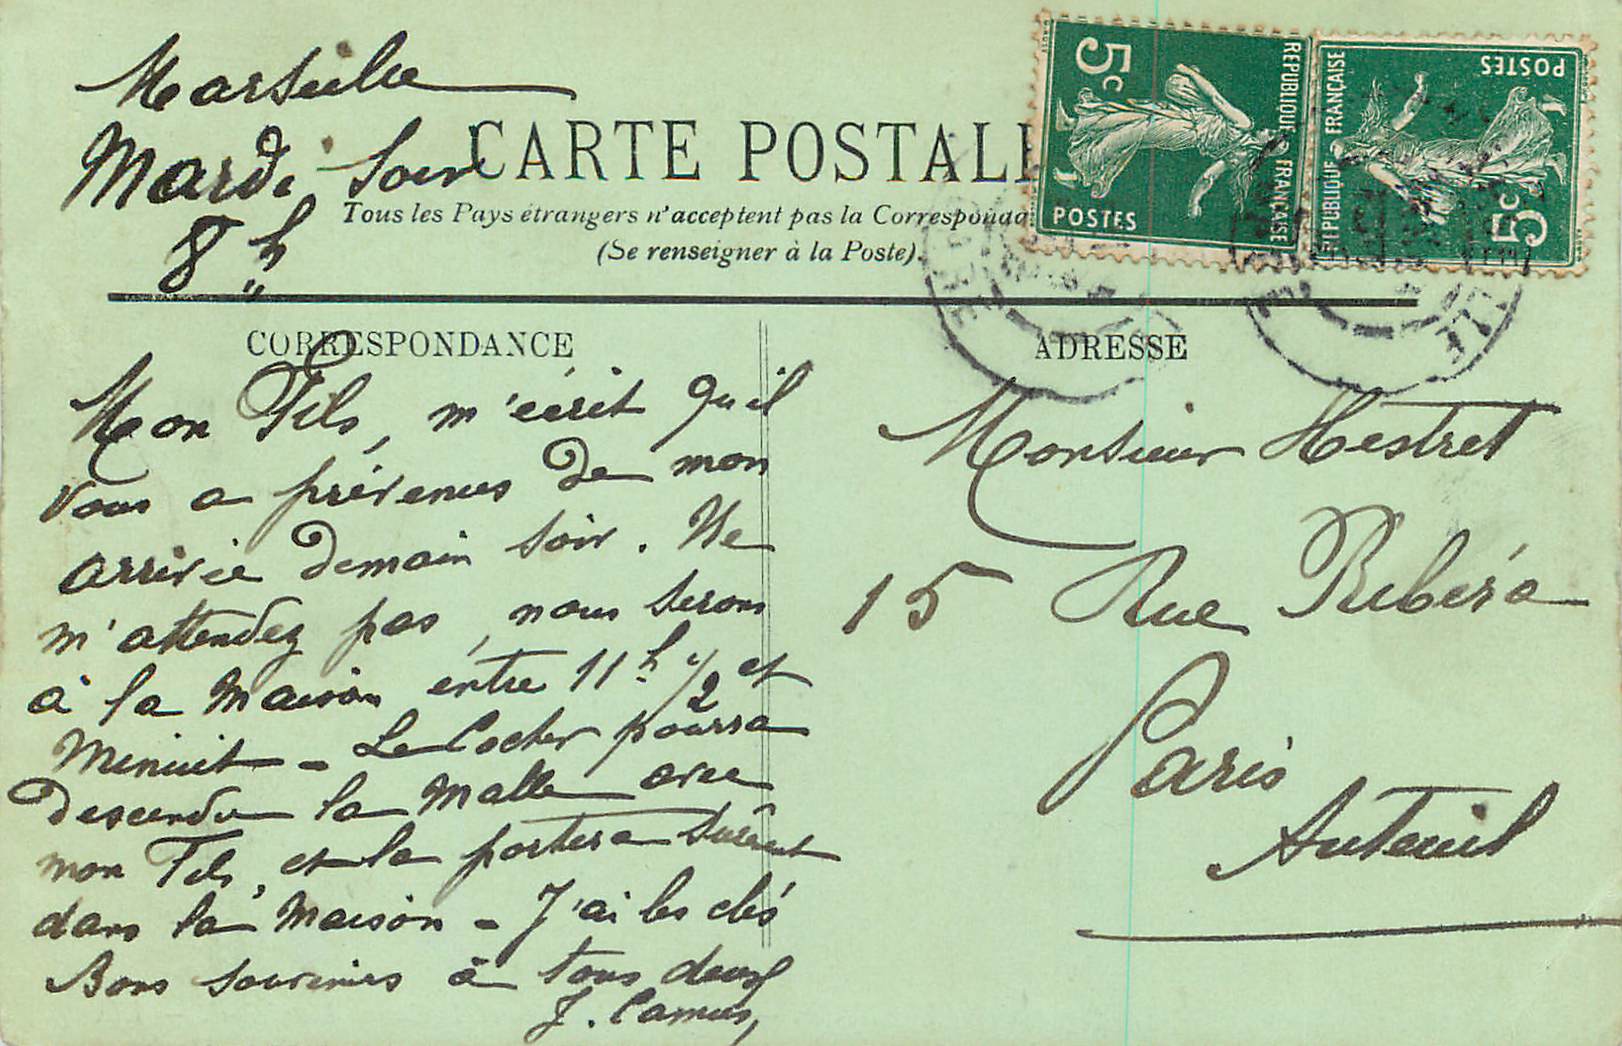 Marseille
Mardi soir
8 h
CARTE POSTALE
Tous les Pays étrangers n'acceptent pas la Correspondance
(Se renseigner à la Poste).
5c
REPUBLIQUE FRANÇAISE
POSTES
REPUBLIQUE FRANÇAISE
POSTES
5c
CORRESPONDANCE
Mon Fils, m'écrit qu'il
vous a prévenus de mon
arrivée demain soir. Ne
m'attendez pas, nous serons
à la maison entre 11h 1/2 et
Minuit - Le Cocher pourra
descendre la Malle avec
mon Fils, et la portera
dans la Maison - J'ai les clés
Bons souvenirs à tous deux
J. Camus,
ADRESSE
Monsieur Hestret
15 Rue Ribéra
Paris
Auteuil